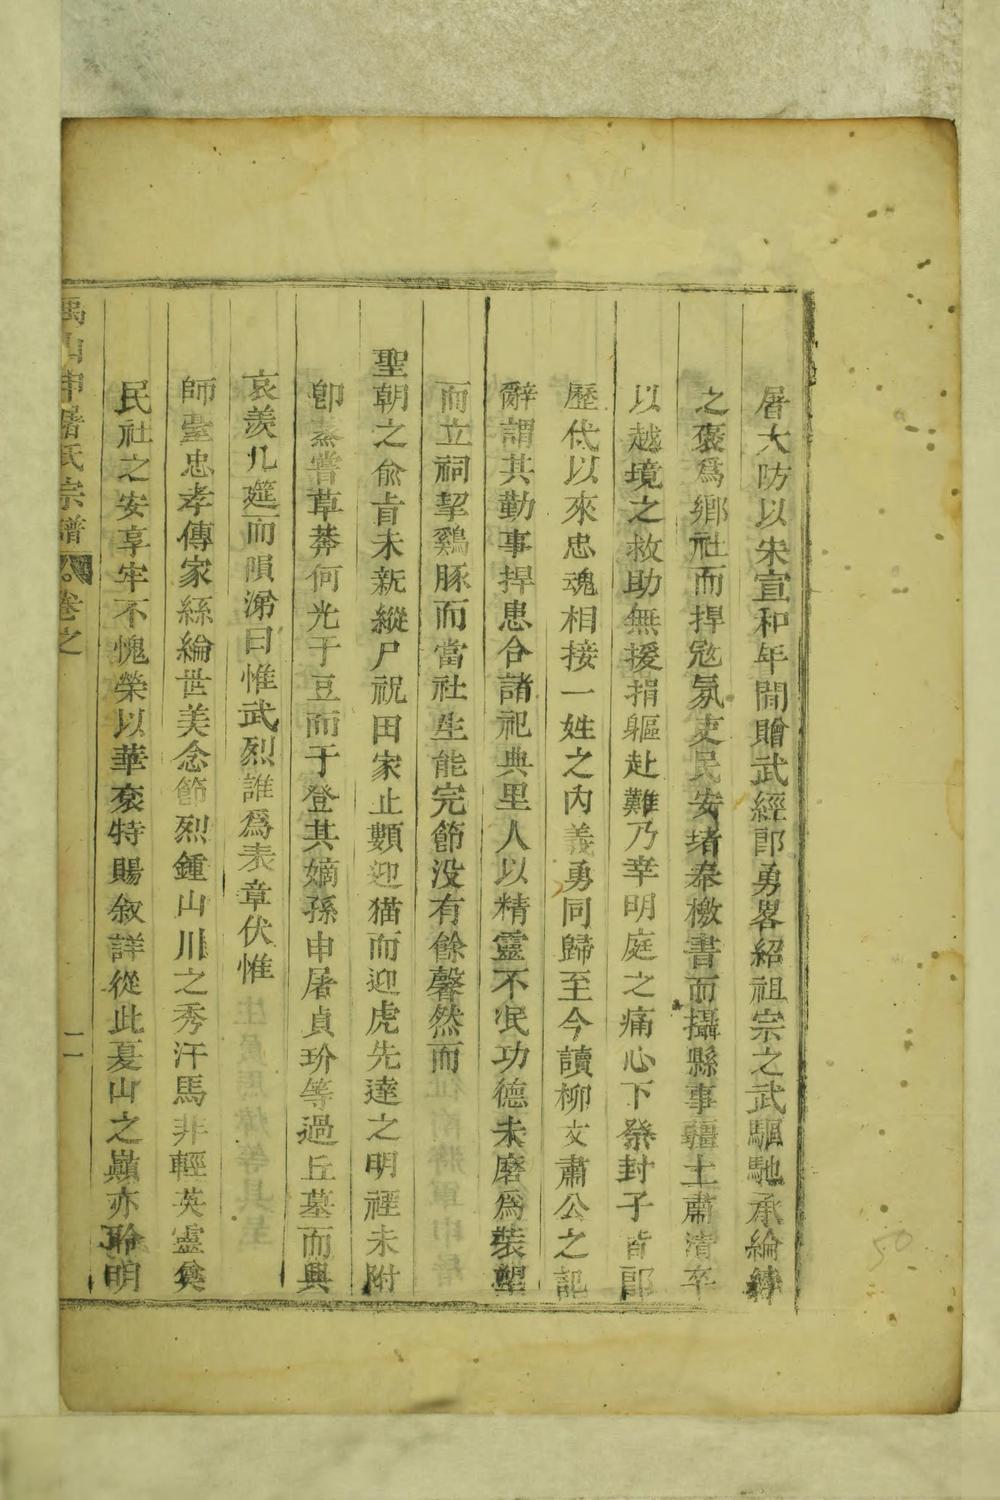 屠大防以宋宣和年間贈武經郎勇畧紹祖宗之武驅馳承綸綍
之褒爲鄉社而捍寇氛吏民安堵奉檄書而攝縣事疆土肅清卒
以越境之救助無援捐軀赴難乃幸明庭之痛心下發封子皆郎
歷代以來忠魂相接一姓之內義勇同歸至今讀柳文肅公之記
辭謂其勤事捍患合諸祀典里人以精靈不泯功德未磨爲裝塑
而立祠挈鷄豚而當社生能完節没有餘馨然而
聖朝之俞旨未新縱尸祝田家止數迎猫而迎虎先達之明禋未附
卽蒸嘗草莽何光于豆而于登其嫡孫申屠貞玠等過丘墓而興
哀羨几筵而隕涕曰惟武烈誰爲表章伏惟
師臺忠孝傳家絲綸世美念節烈鍾山川之秀汗馬非輕英靈奠
民社之安享牢不愧榮以華衮特賜叙詳從此夏山之巔亦聆明
山申屠氏宗譜 卷之
二
50